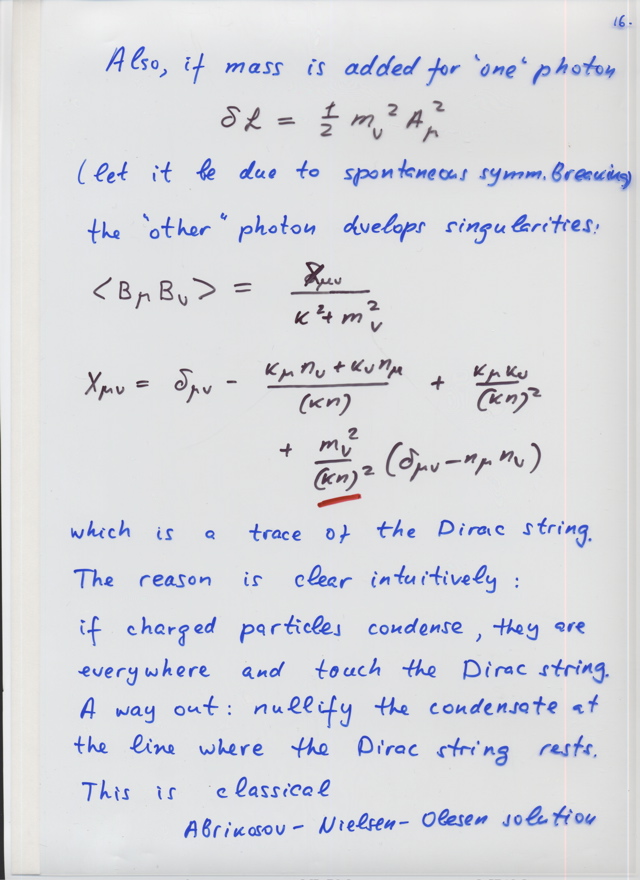 16.
Also, if mass is added for "one" photon
δL = 1/2 m_v^2 A_μ^2
(let it be due to spontaneous symm. Breaking)
the "other" photon dvelops singularities:
<B_μ B_ν> = X_μν / (k^2 + m_v^2)
X_μν = δ_μν - (k_μ n_ν + k_ν n_μ)/(kn) + (k_μ k_ν)/(kn)^2
+ m_v^2/(kn)^2 (δ_μν - n_μ n_ν)
which is a trace of the Dirac string.
The reason is clear intuitively:
if charged particles condense, they are
everywhere and touch the Dirac string.
A way out: nullify the condensate at
the line where the Dirac string rests.
This is classical
Abrikosov - Nielsen - Olesen solution